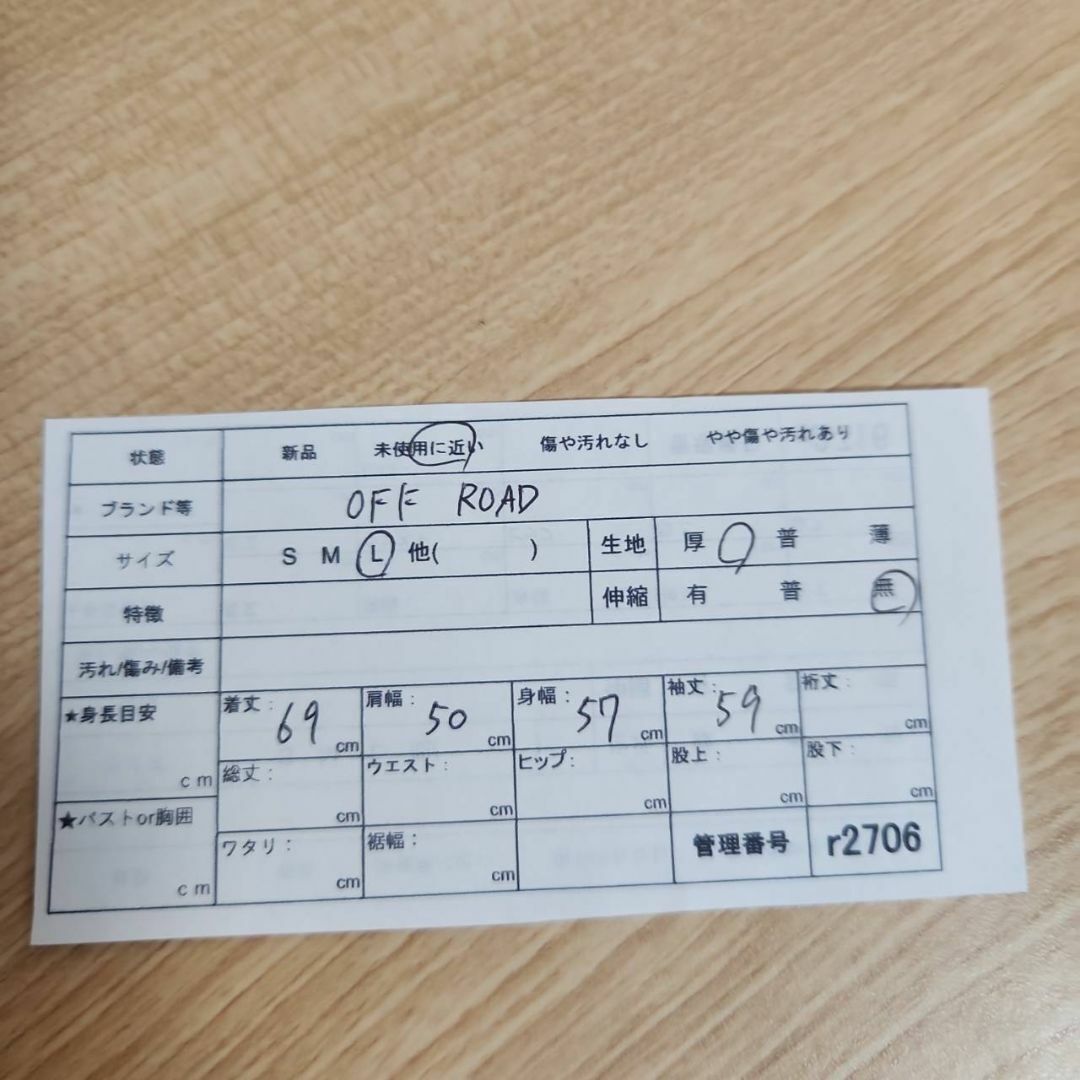 状態 新品 未使用に近い 傷や汚れなし やや傷や汚れあり
ブランド等 OFF ROAD
サイズ S M L 他( ) 生地 厚 普 薄
特徴 伸縮 有 普 無
汚れ/傷み/備考
★身長目安 cm 着丈: 69 cm 肩幅: 50 cm 身幅: 57 cm 袖丈: 59 cm 裄丈: cm
総丈: cm ウエスト: cm ヒップ: cm 股上: cm 股下: cm
★バストor胸囲 cm ワタリ: cm 裾幅: cm 管理番号 r2706